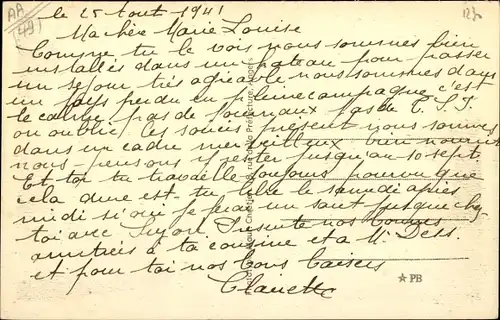 AA
(49)
123
le 25 Août 1941
Ma chère Marie Louise
Comme tu le vois nous sommes bien
installés dans un chateau pour passer
un séjour très agréable nous sommes dans
un pays perdu en pleine campagne c'est
le calme pas de journaux pas de T.S.F.
on oublie les soucis présent nous sommes
dans un cadre merveilleux bien nourrit
nous pensons y rester jusqu'au 10 sept.
Et toi tu travaille toujours pourvu que
cela dure est-tu libre le samedi après
midi si oui je ferai un saut jusque chez
toi avec Présente nos bonnes
amitiées à ta cousine et a M.
et pour toi nos bons baisers
Clanette
★ PB